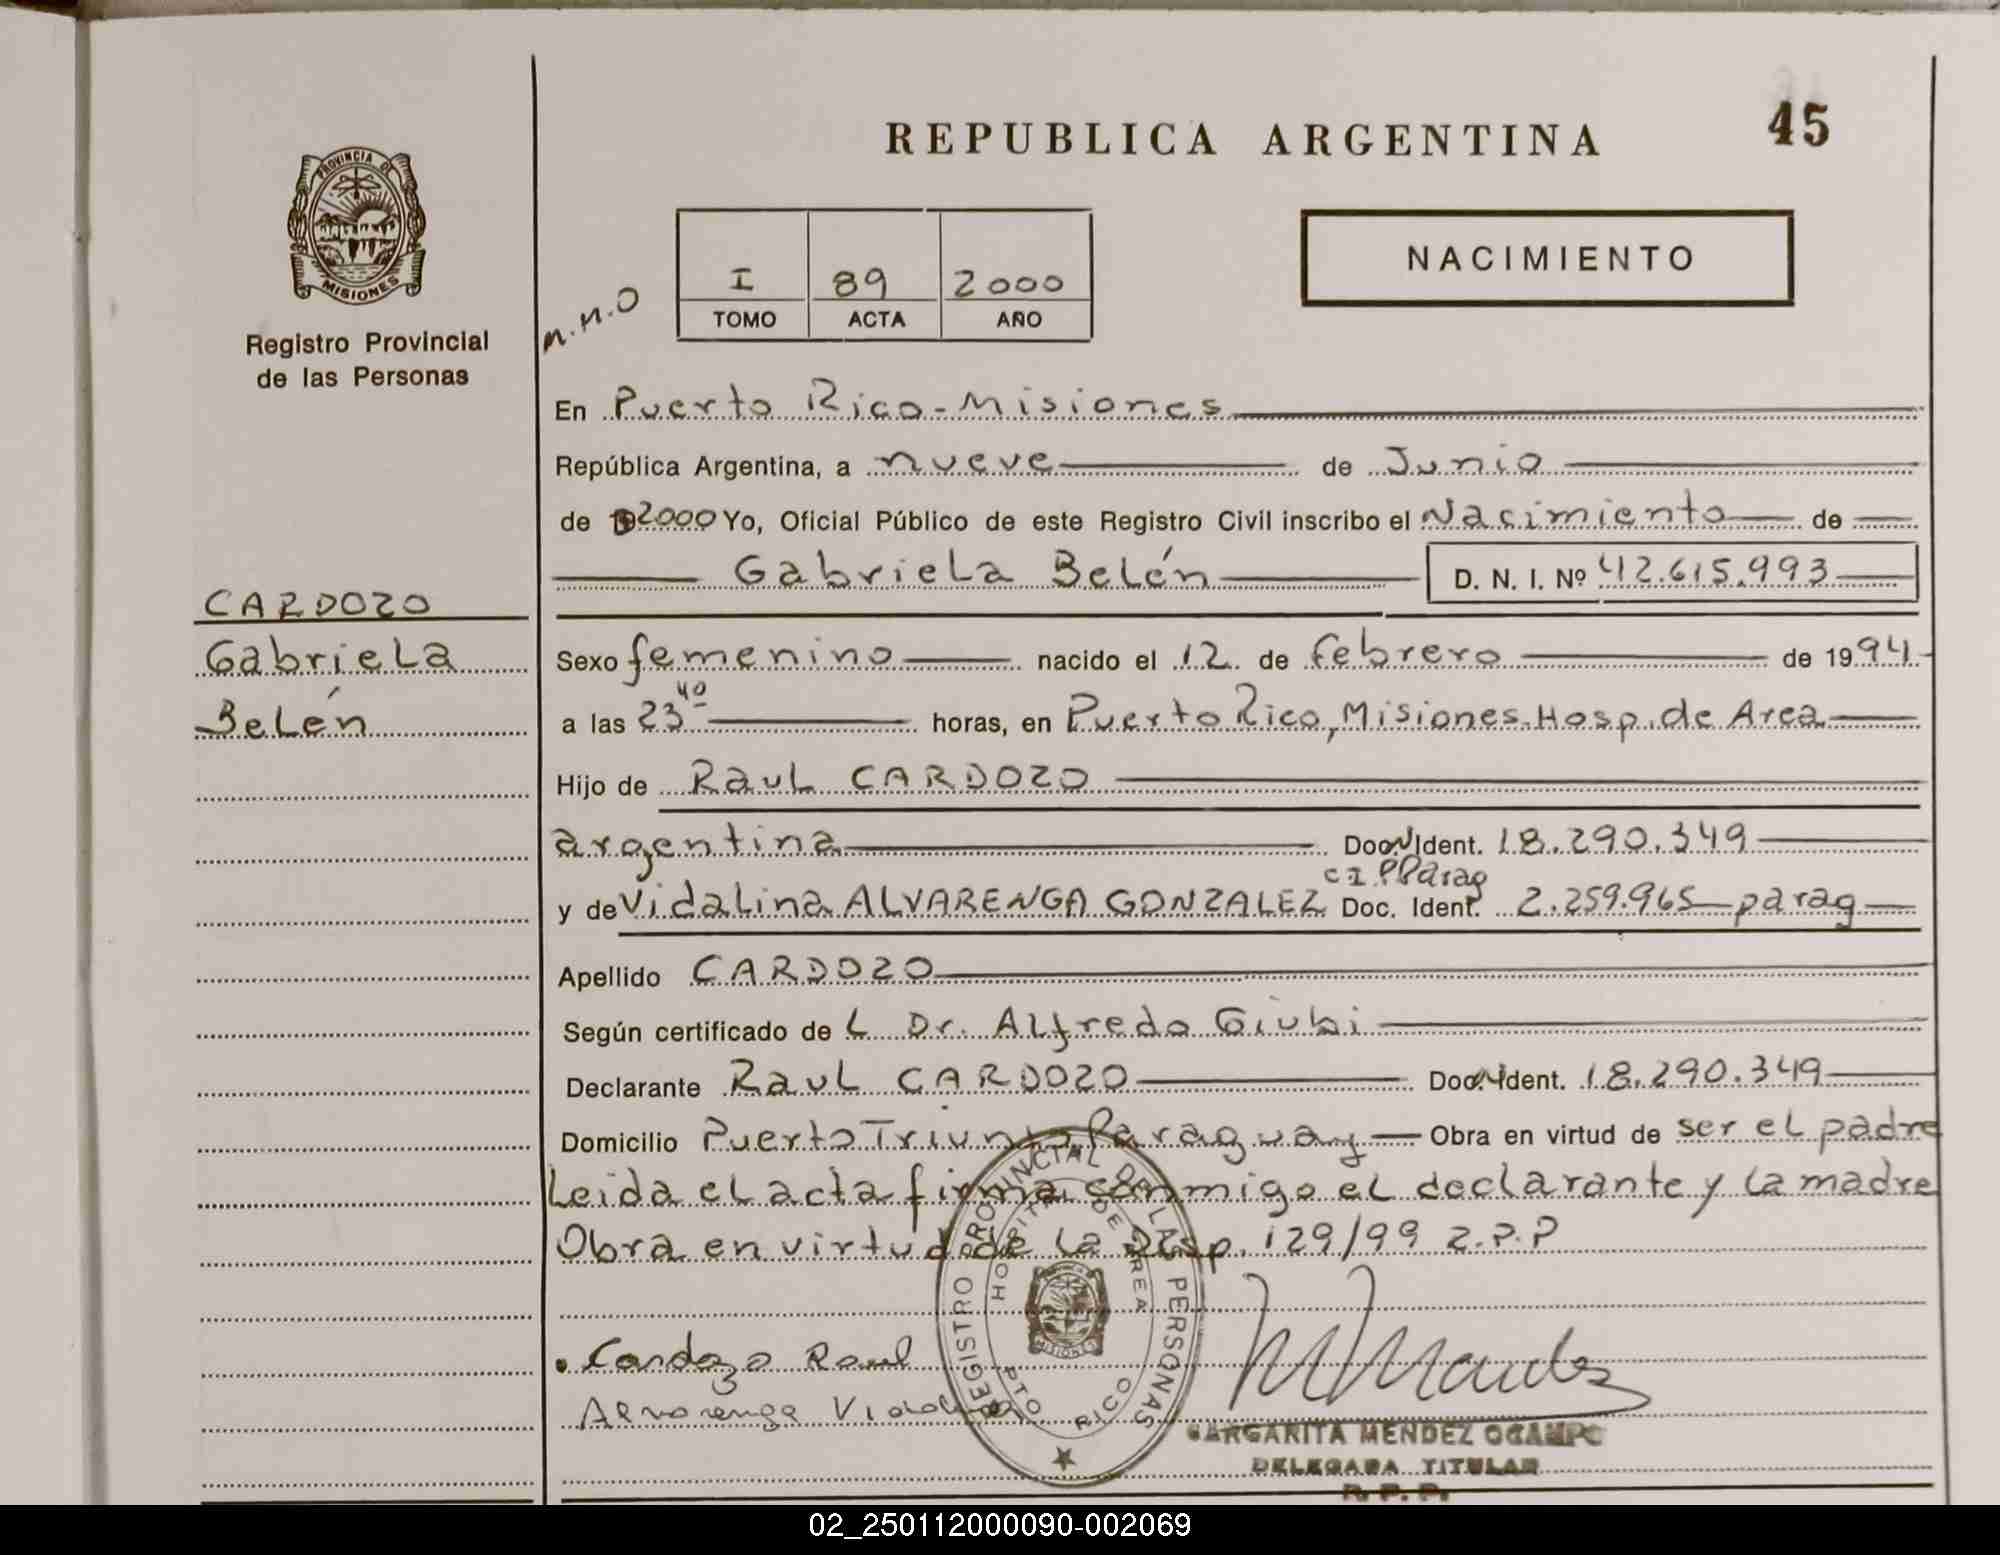 REPUBLICA ARGENTINA
45
PROVINCIA DE
MISIONES
Registro Provincial
de las Personas
NACIMIENTO
I 89 2000
TOMO ACTA AÑO
M.M.O
En Puerto Rico-Misiones
República Argentina, a nueve de Junio
de 2000 Yo, Oficial Público de este Registro Civil inscribo el Nacimiento de
Gabriela Belén D. N. I. Nº 42.615.993
CARDOZO
Gabriela
Belén
Sexo femenino nacido el 12 de febrero de 1994
a las 23 40 horas, en Puerto Rico, Misiones. Hosp. de Area
Hijo de Raul CARDOZO
argentina Doc. Ident. 18.290.349
CI Parag
y de Vidalina ALVARENGA GONZALEZ Doc. Ident. 2.259.965 parag
Apellido CARDOZO
Según certificado de L Dr. Alfredo Giubi
Declarante Raul CARDOZO Doc. Ident. 18.290.349
Domicilio Puerto Triunfo Paraguay Obra en virtud de ser el padre
Leida el acta firma conmigo el declarante y la madre
Obra en virtud de la Disp. 129/99 R.P.P
REGISTRO PROVINCIAL DE LAS PERSONAS
HOSPITAL DE AREA
PTO RICO
MISIONES
Cardozo Raul
Alvarenga Vidalina
MARGARITA MENDEZ OCAMPO
DELEGADA TITULAR
R. P. P.
02_250112000090-002069